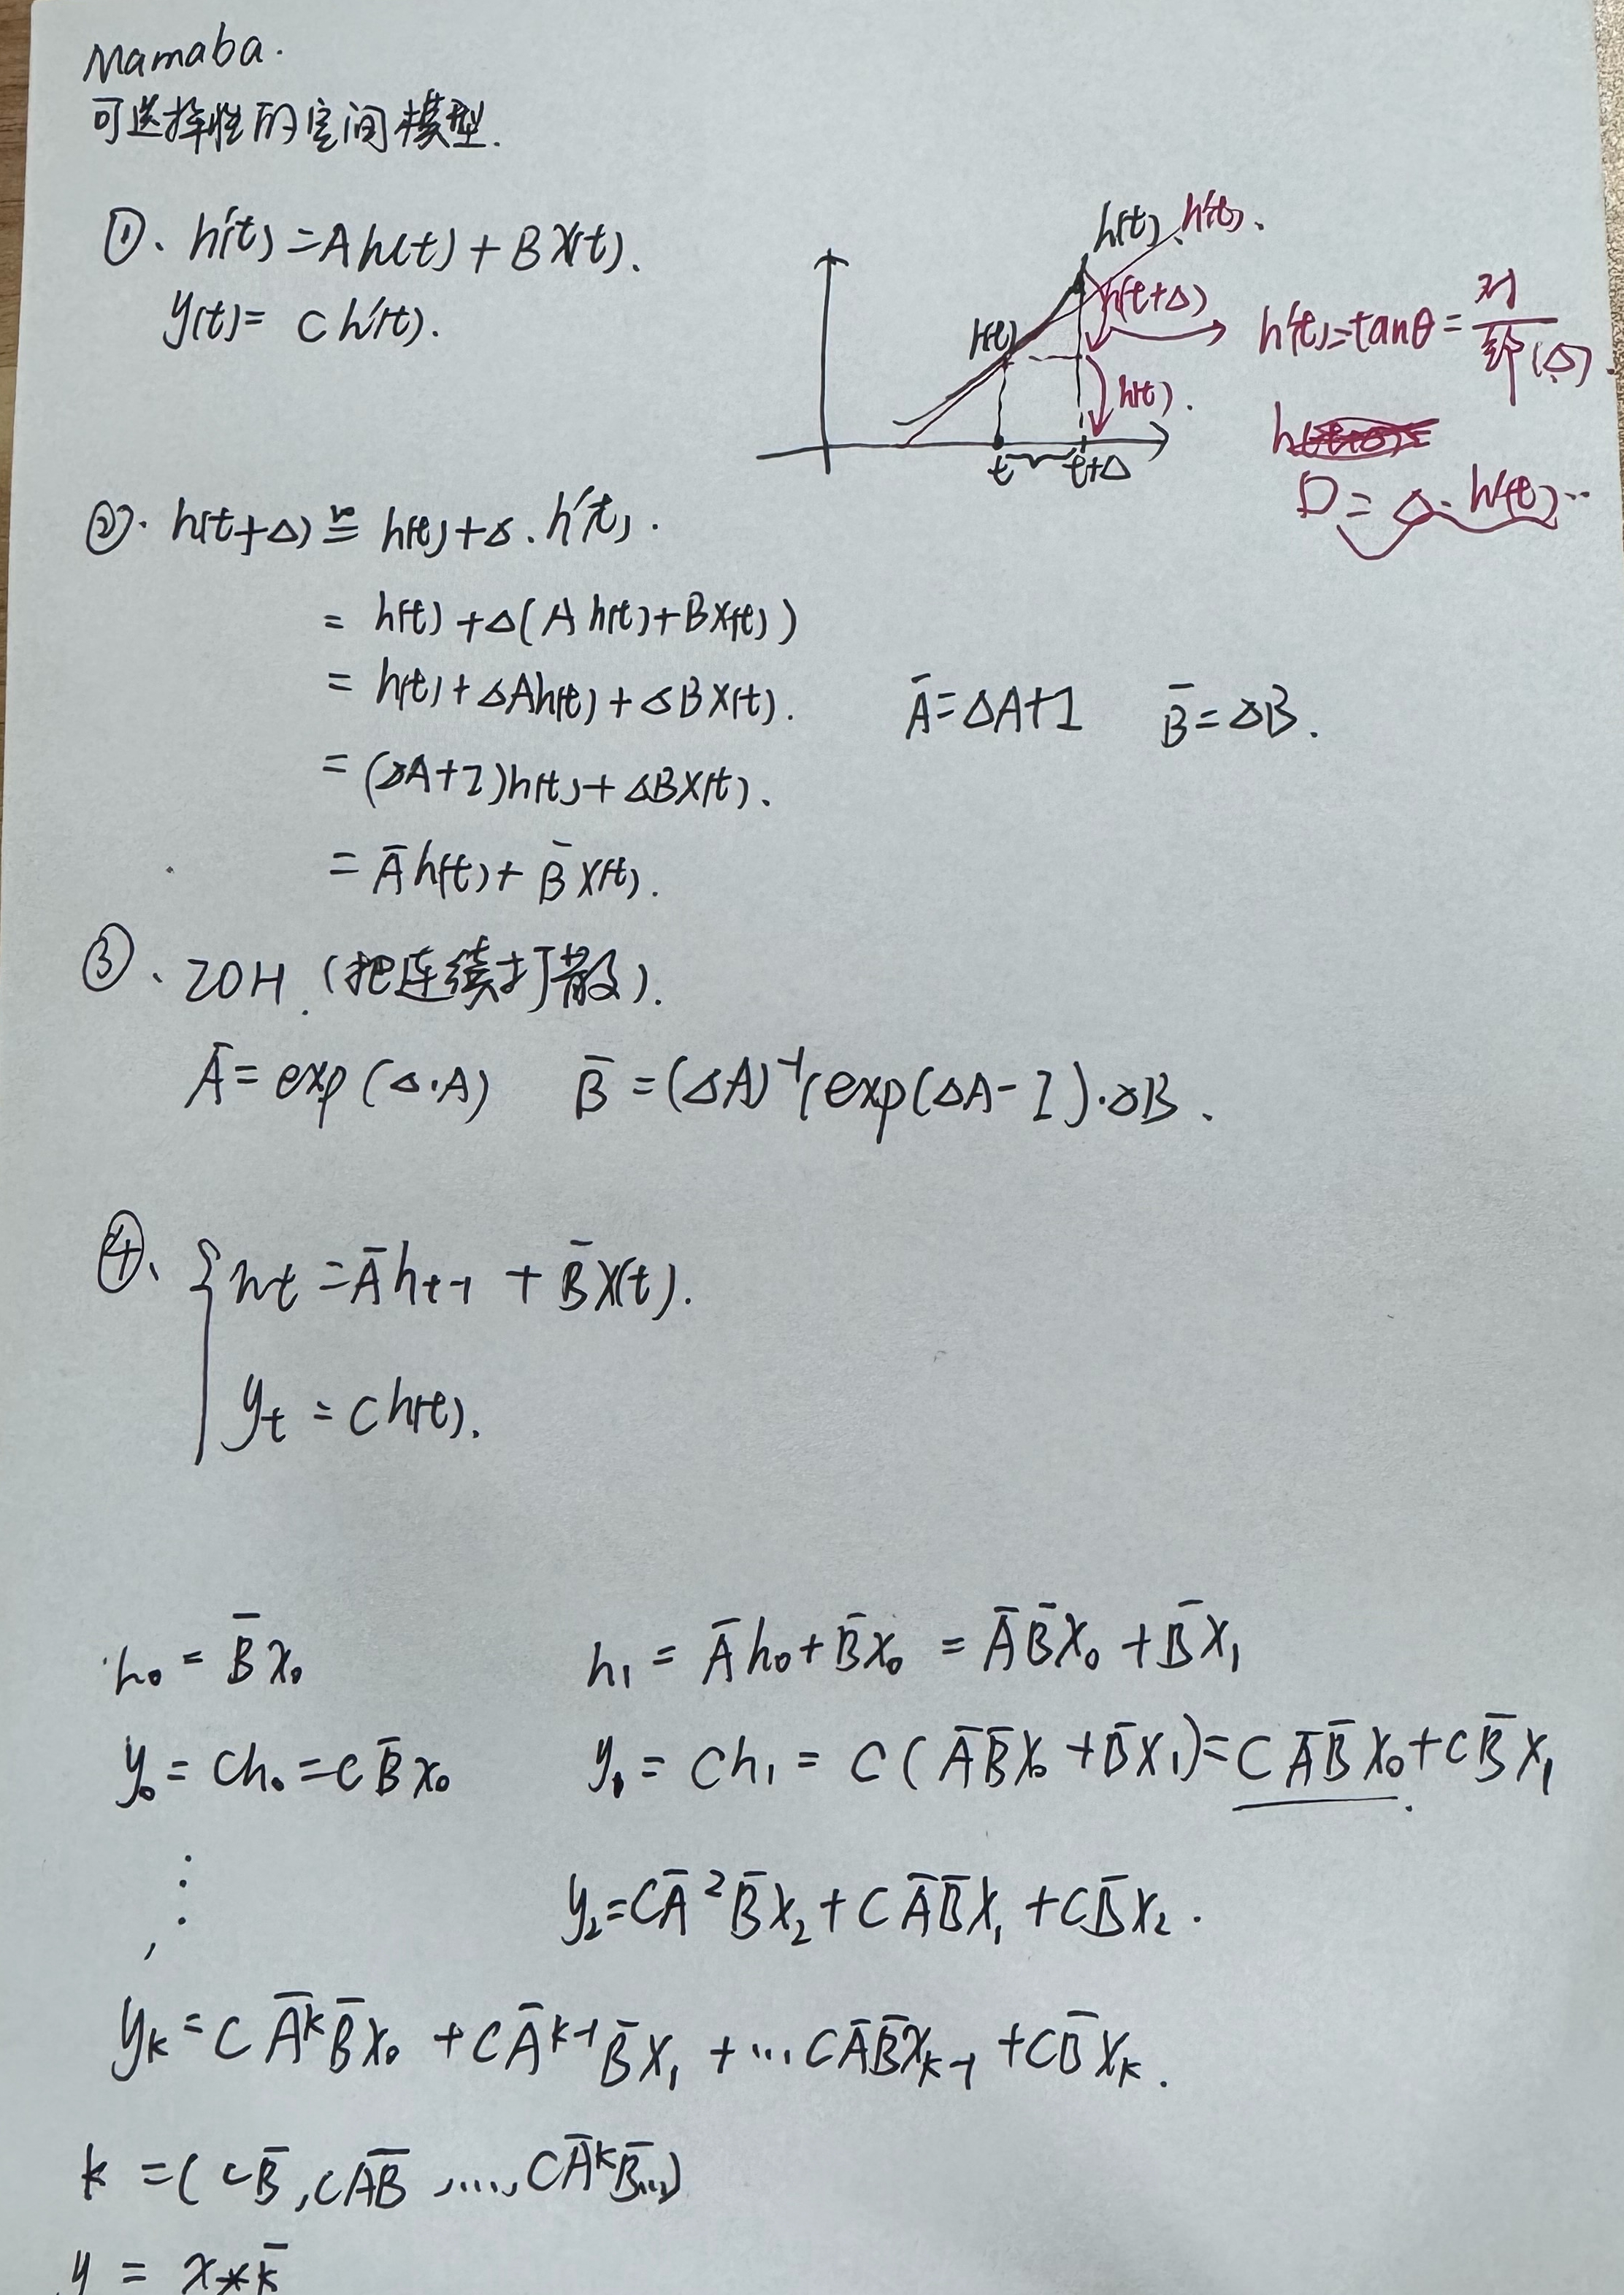 Mamaba.
可选择性的空间模型.
①. h'(t) = A h(t) + B x(t).
y(t) = C h'(t).
h(t). h'(t).
h(t)
h(t+Δ)
h(t).
t
t+Δ
h'(t) = tanθ = 对/邻(Δ).
D = Δ · h'(t)..
②. h(t+Δ) ≌ h(t) + Δ . h'(t).
= h(t) + Δ(A h(t) + B x(t))
= h(t) + ΔA h(t) + ΔB x(t). Ā = ΔA + I B̄ = ΔB.
= (ΔA + I) h(t) + ΔB x(t).
= Ā h(t) + B̄ x(t).
③. ZOH. (把连续打散).
Ā = exp(Δ·A) B̄ = (ΔA)⁻¹(exp(ΔA - I)·ΔB.
④. { ht = Ā hₜ₋₁ + B̄ x(t).
yₜ = C h(t).
h₀ = B̄ x₀ h₁ = Ā h₀ + B̄ x₀ = Ā B̄ x₀ + B̄ x₁
y₀ = C h₀ = C B̄ x₀ y₁ = C h₁ = C ( Ā B̄ x₀ + B̄ x₁) = C Ā B̄ x₀ + C B̄ x₁
y₂ = C Ā² B̄ x₂ + C Ā B̄ x₁ + C B̄ x₂.
yₖ = C Āᵏ B̄ x₀ + C Āᵏ⁻¹ B̄ x₁ + ... C Ā B̄ xₖ₋₁ + C B̄ xₖ.
k = (C B̄, C Ā B̄, ...., C Āᵏ B̄...)
y = x * k̄